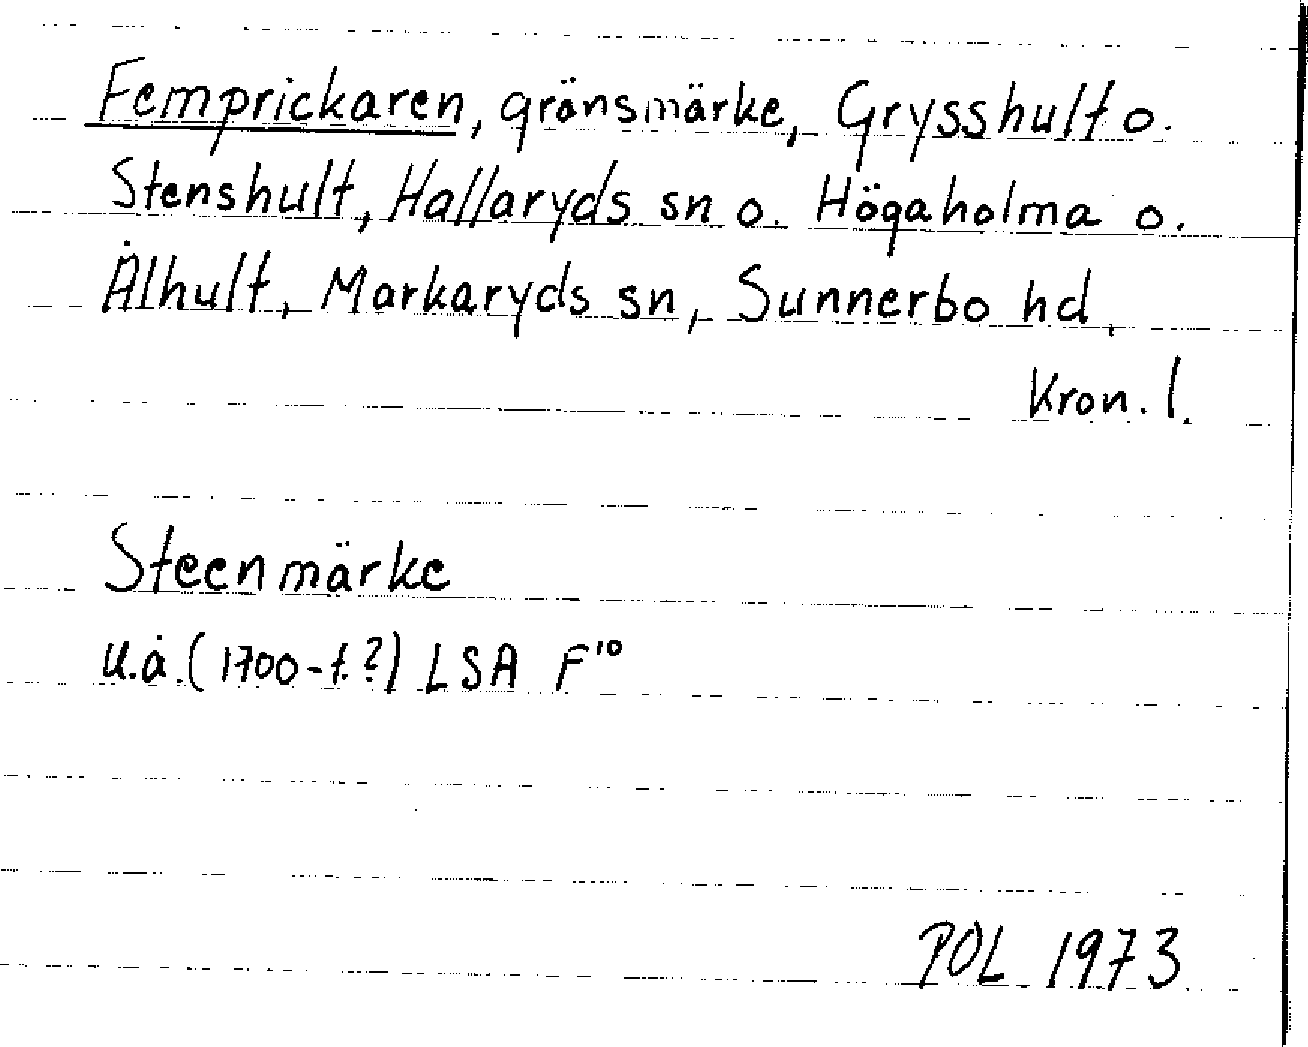 Femprickaren, gränsmärke, Grysshult o.
Stenshult, Hallaryds sn o. Högaholma o.
Ålhult, Markaryds sn, Sunnerbo hd,
Kron. l.
Steenmärke
u.å. (1700-t.?) LSA F¹⁰
POL 1973